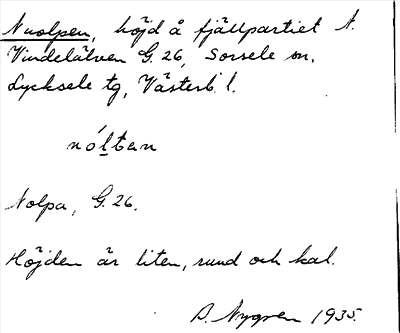 Nuolpen, höjd å fjällpartiet N.
Vindelälven G. 26, Sorsele sn.
Lycksele tg, Västerb. l.
nóltan
Nolpa, G. 26.
Höjden är liten, rund och kal.
B. Nygren 1935.